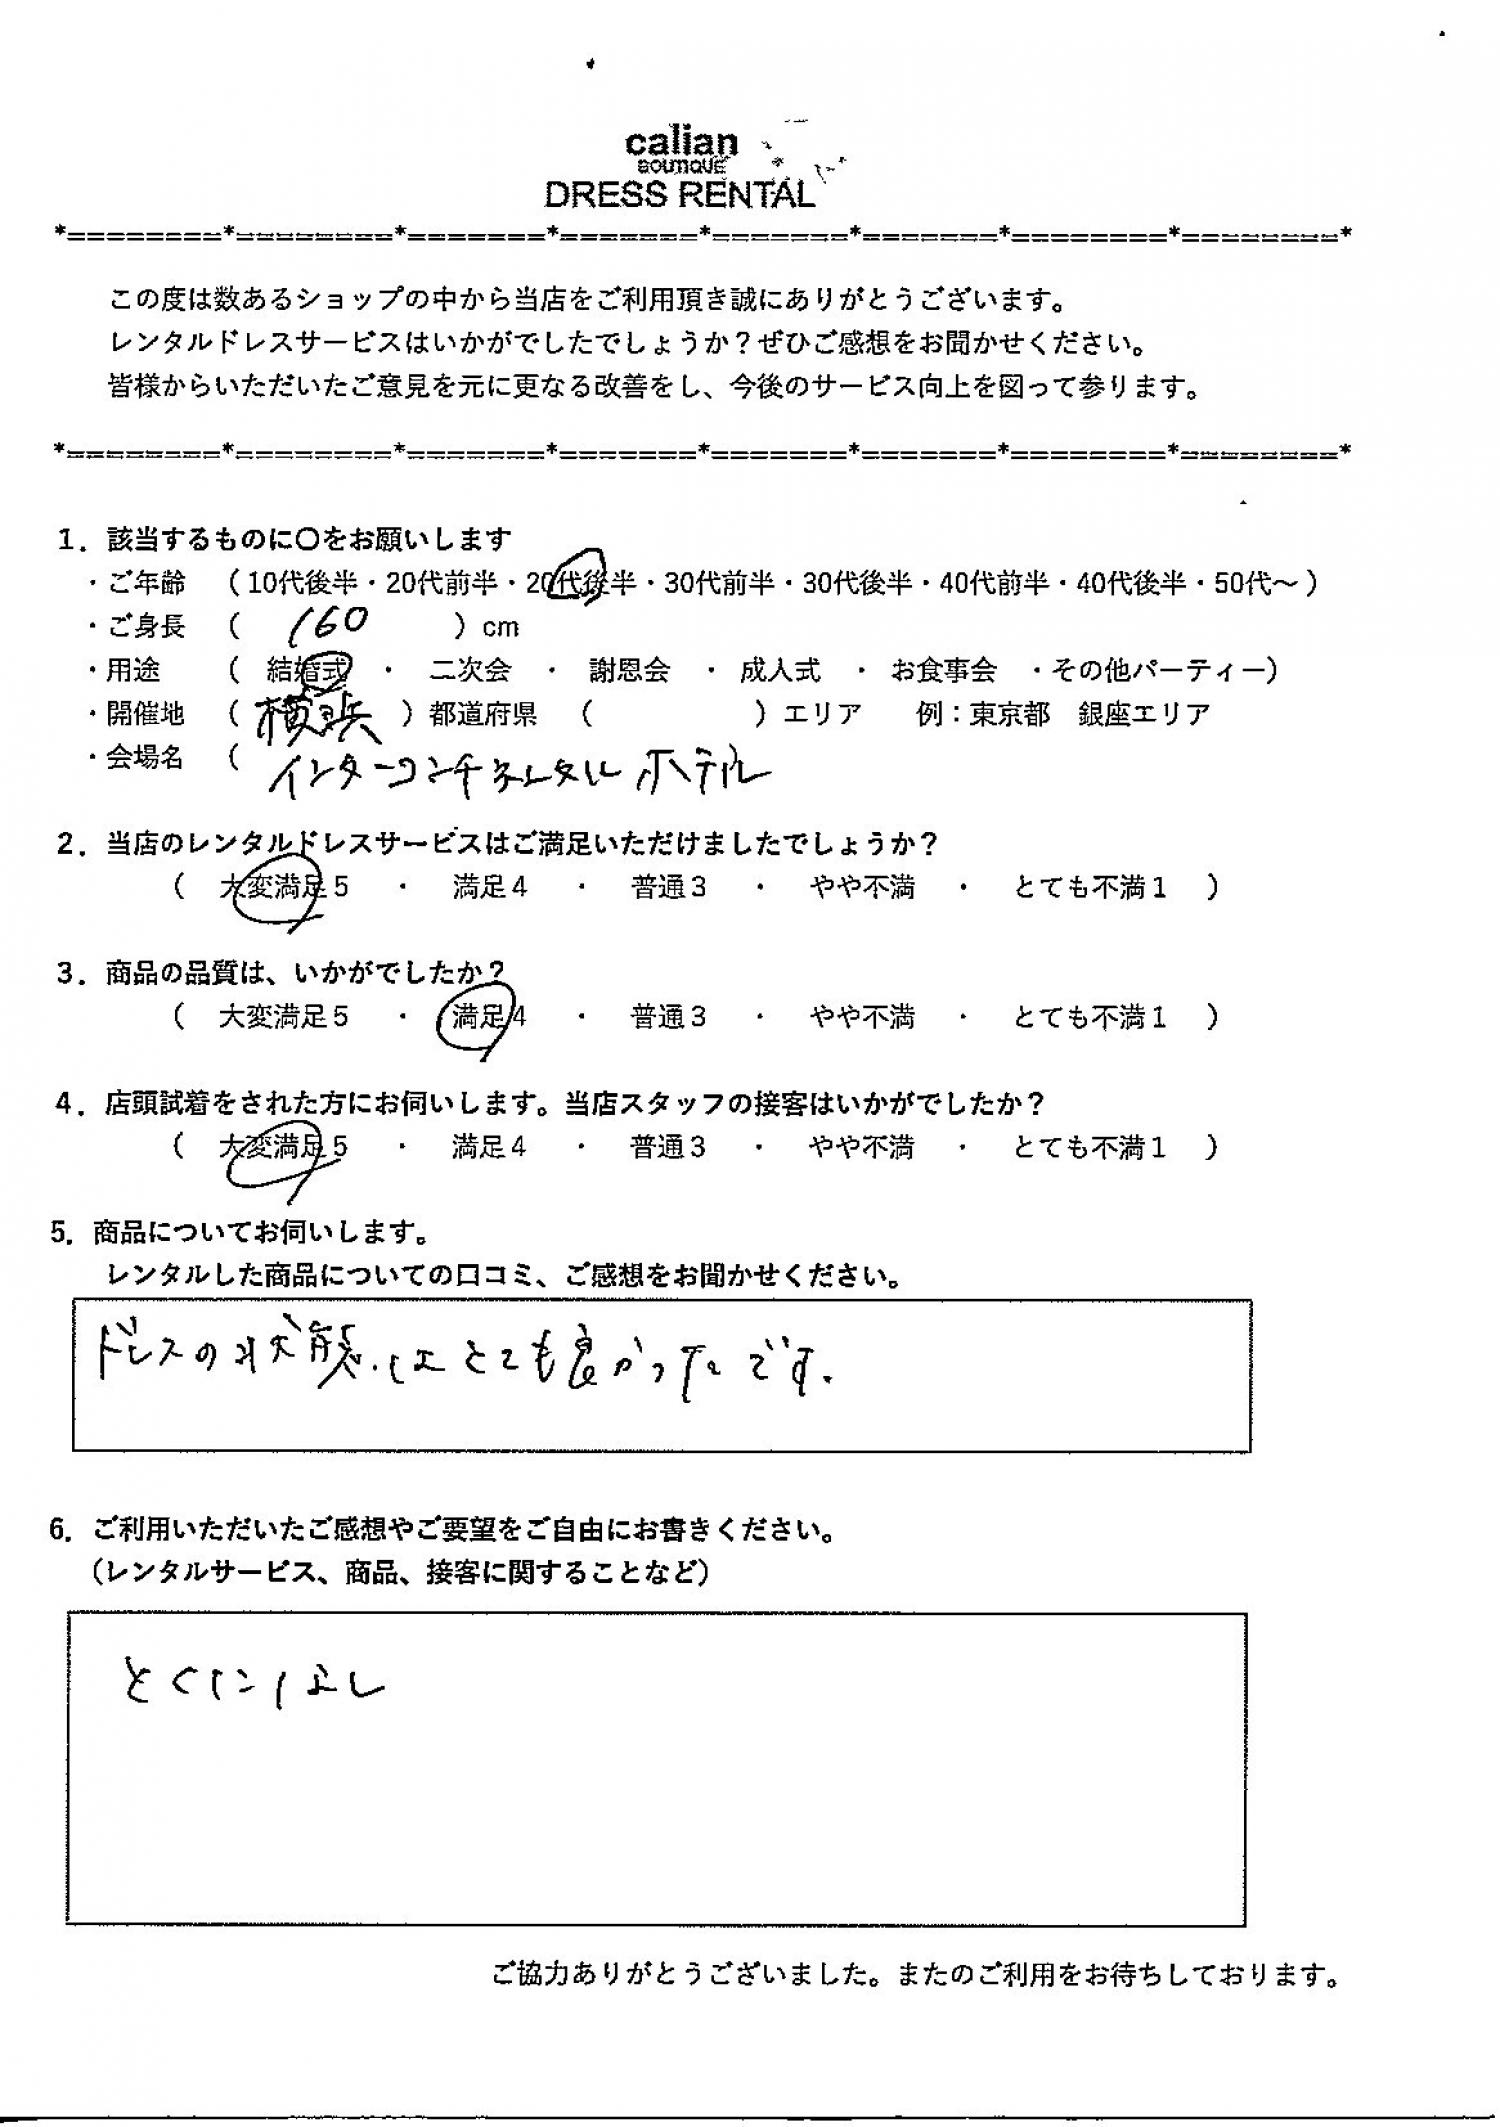 calian
BOUTIQUE
DRESS RENTAL
*========*========*=======*=======*=======*=======*========*========*
この度は数あるショップの中から当店をご利用頂き誠にありがとうございます。
レンタルドレスサービスはいかがでしたでしょうか？ぜひご感想をお聞かせください。
皆様からいただいたご意見を元に更なる改善をし、今後のサービス向上を図って参ります。
*========*========*=======*=======*=======*=======*========*========*
1．該当するものに〇をお願いします
・ご年齢　（10代後半・20代前半・20代後半・30代前半・30代後半・40代前半・40代後半・50代～）
・ご身長　（　160　）cm
・用途　（　結婚式　・　二次会　・　謝恩会　・　成人式　・　お食事会　・その他パーティー）
・開催地　（　横浜　）都道府県　（　　　）エリア　例：東京都　銀座エリア
・会場名　（　インターコンチネンタルホテル
2．当店のレンタルドレスサービスはご満足いただけましたでしょうか？
（　大変満足５　・　満足４　・　普通３　・　やや不満　・　とても不満１　）
3．商品の品質は、いかがでしたか？
（　大変満足５　・　満足４　・　普通３　・　やや不満　・　とても不満１　）
4．店頭試着をされた方にお伺いします。当店スタッフの接客はいかがでしたか？
（　大変満足５　・　満足４　・　普通３　・　やや不満　・　とても不満１　）
5．商品についてお伺いします。
レンタルした商品についての口コミ、ご感想をお聞かせください。
ドレスの状態はとても良かったです．
6．ご利用いただいたご感想やご要望をご自由にお書きください。
（レンタルサービス、商品、接客に関することなど）
とくになし
ご協力ありがとうございました。またのご利用をお待ちしております。